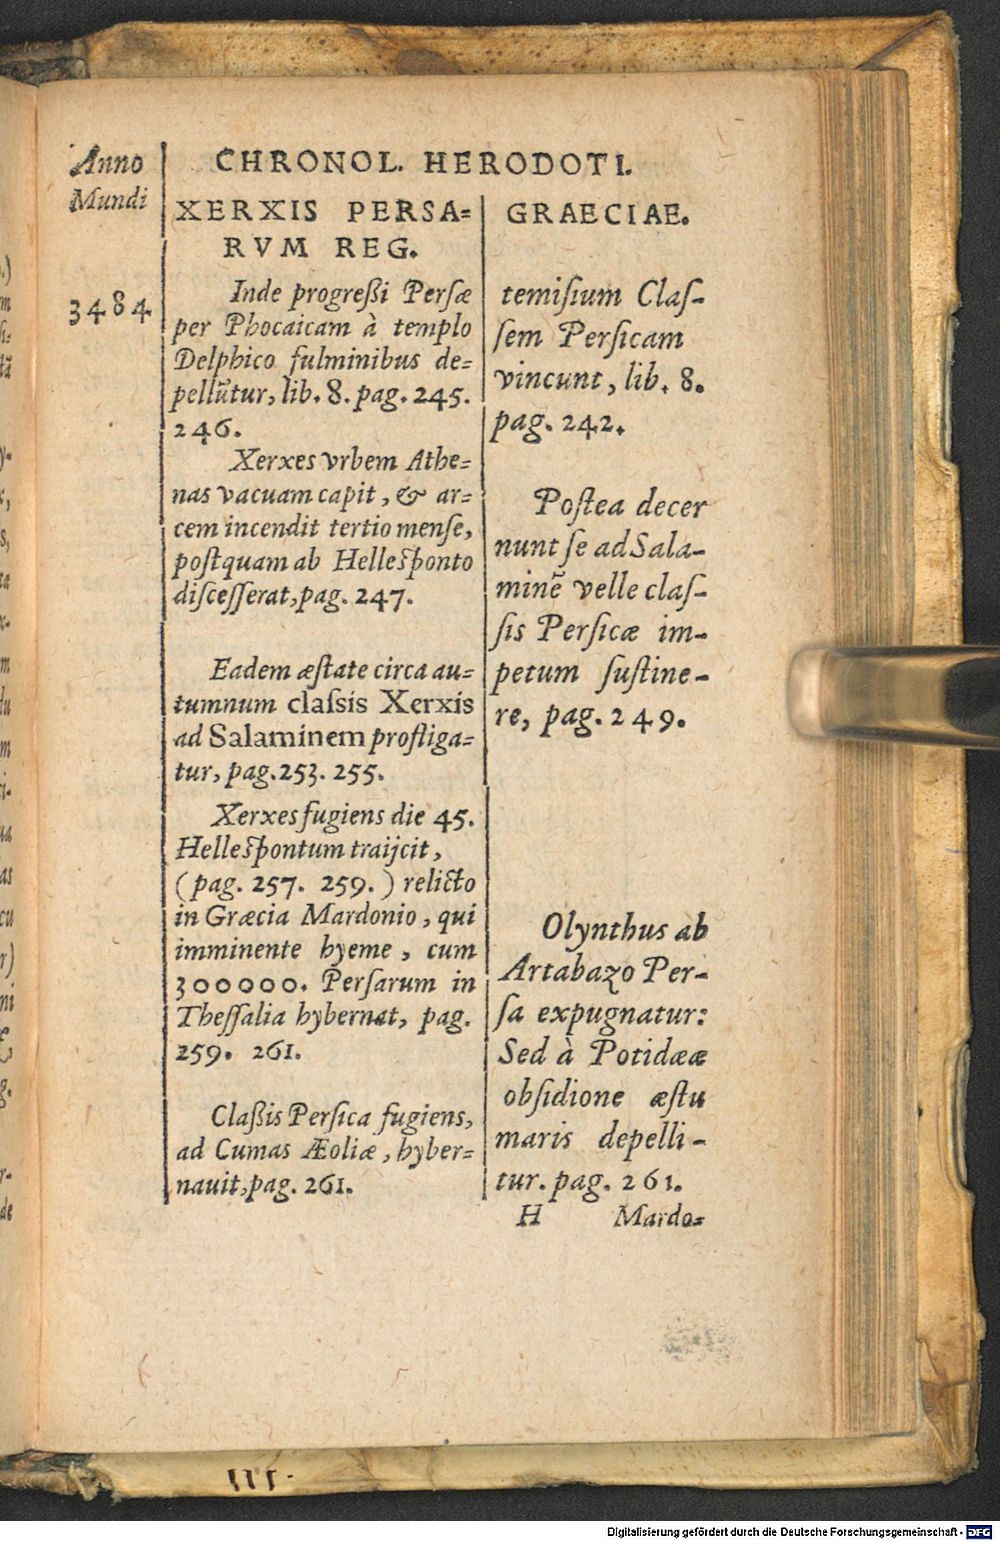 Anno
Mundi
3484
CHRONOL. HERODOTI.
XERXIS PERSA=
RVM REG.
Inde progreßi Persæ
per Phocaicam à templo
Delphico fulminibus de=
pellūtur, lib. 8. pag. 245.
246.
Xerxes vrbem Athe=
nas vacuam capit, & ar=
cem incendit tertio mense,
postquam ab Hellesponto
discesserat, pag. 247.
Eadem æstate circa au=
tumnum classis Xerxis
ad Salaminem profliga=
tur, pag. 253. 255.
Xerxes fugiens die 45.
Hellespontum traijcit,
(pag. 257. 259.) relicto
in Græcia Mardonio, qui
imminente hyeme, cum
300000. Persarum in
Thessalia hybernat, pag.
259. 261.
Claßis Persica fugiens,
ad Cumas Æoliæ, hyber=
nauit, pag. 261.
GRAECIAE.
temisium Clas-
sem Persicam
vincunt, lib. 8.
pag. 242.
Postea decer
nunt se ad Sala-
minē velle clas-
sis Persicæ im-
petum sustine-
re, pag. 249.
Olynthus ab
Artabazo Per-
sa expugnatur:
Sed à Potidææ
obsidione æstu
maris depelli-
tur. pag. 261.
H Mardo=
Digitalisierung gefördert durch die Deutsche Forschungsgemeinschaft - DFG